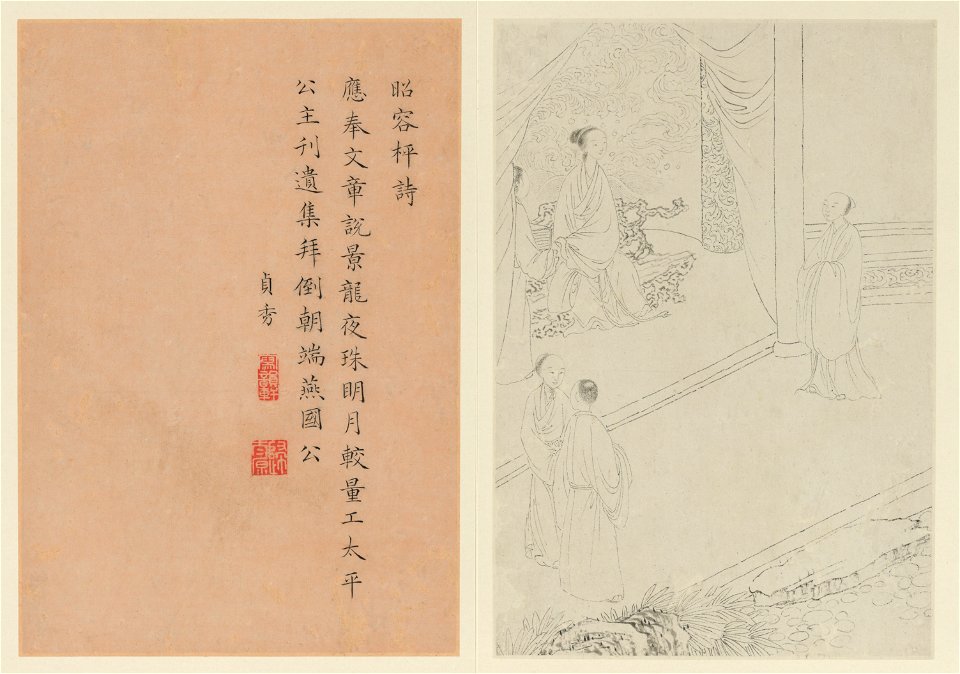 昭容枰詩
應奉文章說景龍夜珠明月較量工太平
公主刊遺集拜倒朝端燕國公
貞秀